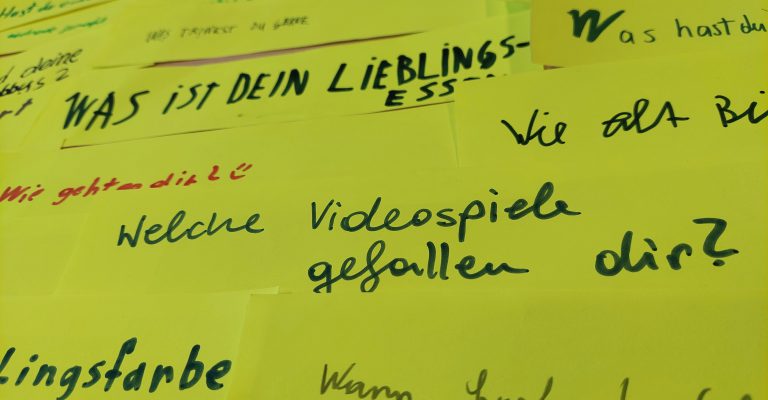 WAS TRINKST DU GERNE
Was hast du
deine
WAS IST DEIN LIEBLINGS-
ESSEN
Wie alt Bi
Wie geht es dir? :)
Welche Videospiele
gefallen dir?
lingsfarbe
Wann